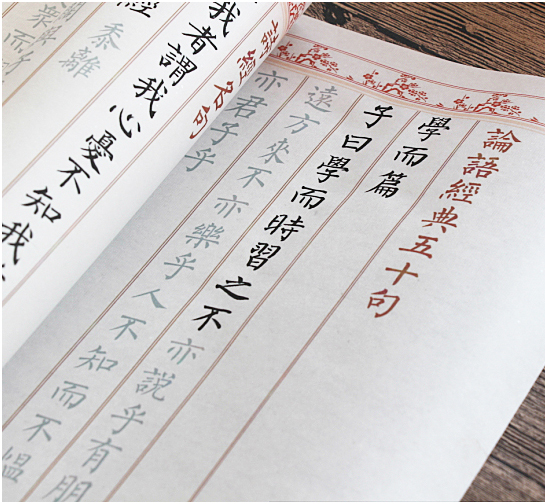 論語經典五十句
學而篇
子曰學而時習之不亦說乎有朋
遠方來不亦樂乎人不知而不慍
亦君子乎
詩經名句
我者謂我心憂不知我
經
黍離